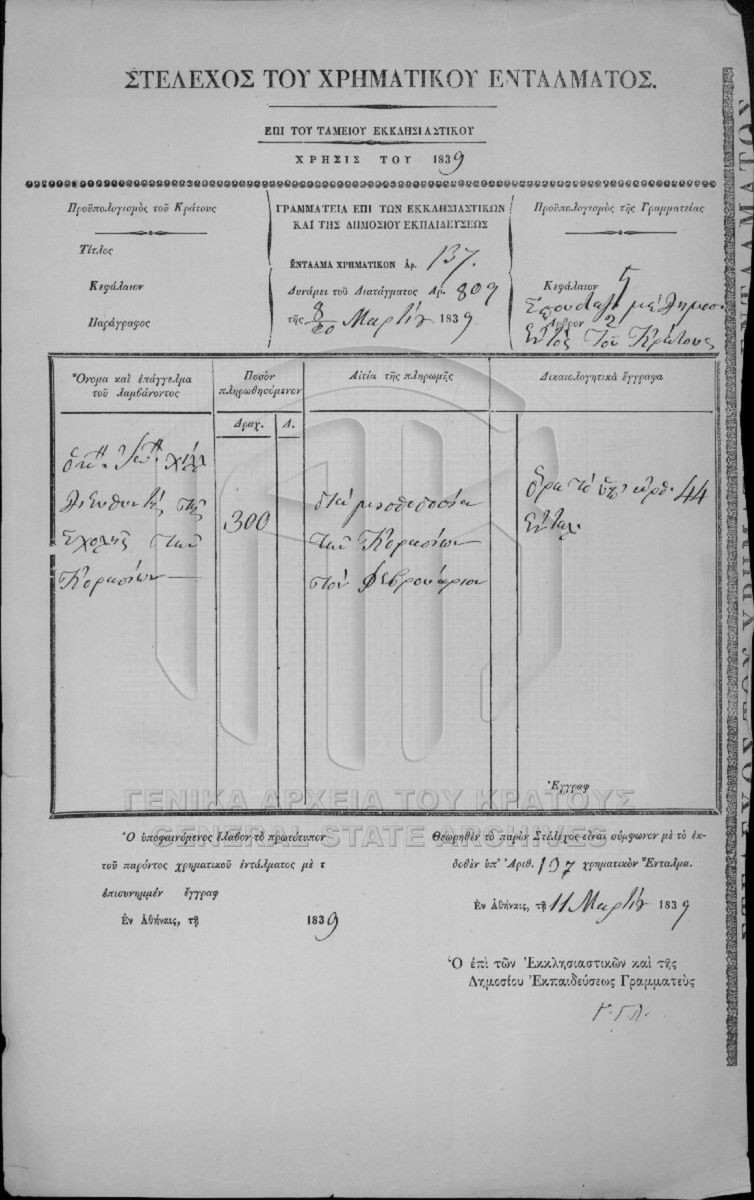 ΣΤΕΛΕΧΟΣ ΤΟΥ ΧΡΗΜΑΤΙΚΟΥ ΕΝΤΑΛΜΑΤΟΣ.
ΕΠΙ ΤΟΥ ΤΑΜΕΙΟΥ ΕΚΚΛΗΣΙΑΣΤΙΚΟΥ
ΧΡΗΣΙΣ ΤΟΥ 1839
Προϋπολογισμὸς τοῦ Κράτους
Τίτλος
Κεφάλαιον
Παράγραφος
ΓΡΑΜΜΑΤΕΙΑ ΕΠΙ ΤΩΝ ΕΚΚΛΗΣΙΑΣΤΙΚΩΝ
ΚΑΙ ΤΗΣ ΔΗΜΟΣΙΟΥ ΕΚΠΑΙΔΕΥΣΕΩΣ
ΕΝΤΑΛΜΑ ΧΡΗΜΑΤΙΚΟΝ Ἀρ. 137.
Δυνάμει τοῦ Διατάγματος Ἀρ. 809
τῆς 8/20 Μαρτίου 1839
Προϋπολογισμὸς τῆς Γραμματείας
Κεφάλαιον 5
Ἄρθρον 2
Ἐντὸς τοῦ Κράτους
Ὄνομα καὶ ἐπάγγελμα
τοῦ λαμβάνοντος
Ποσὸν
πληρωθησόμενον
Αἰτία τῆς πληρωμῆς
Δικαιολογητικὰ ἔγγραφα
Δραχ. Λ.
Χίλλ
Διευθυντὴς τῆς
Σχολῆς τῶν
Κορασίων
300
διὰ μισθοδοσία
τῶν Κορασίων
τὸν Φεβρουάριον
ὅρα τὸ ὑπ' ἀρθ. 44
Ἐνταλ
Ἔγγραφ
ΓΕΝΙΚΑ ΑΡΧΕΙΑ ΤΟΥ ΚΡΑΤΟΥΣ
GENERAL STATE ARCHIVES
Ὁ ὑποφαινόμενος ἔλαβον τὸ πρωτότυπον
τοῦ παρόντος χρηματικοῦ ἐντάλματος μὲ τ
ἐπισυνημμέν ἔγγραφ
Ἐν Ἀθήναις, τῇ 1839
Θεωρηθὲν τὸ παρὸν Στέλεχος εἶναι σύμφωνον μὲ τὸ ἐκ-
δοθὲν ὑπ' Ἀριθ. 137 χρηματικὸν Ἔνταλμα.
Ἐν Ἀθήναις, τῇ 11 Μαρτίου 1839
Ὁ ἐπὶ τῶν Ἐκκλησιαστικῶν καὶ τῆς
Δημοσίου Ἐκπαιδεύσεως Γραμματεὺς
Γ. Γλ.